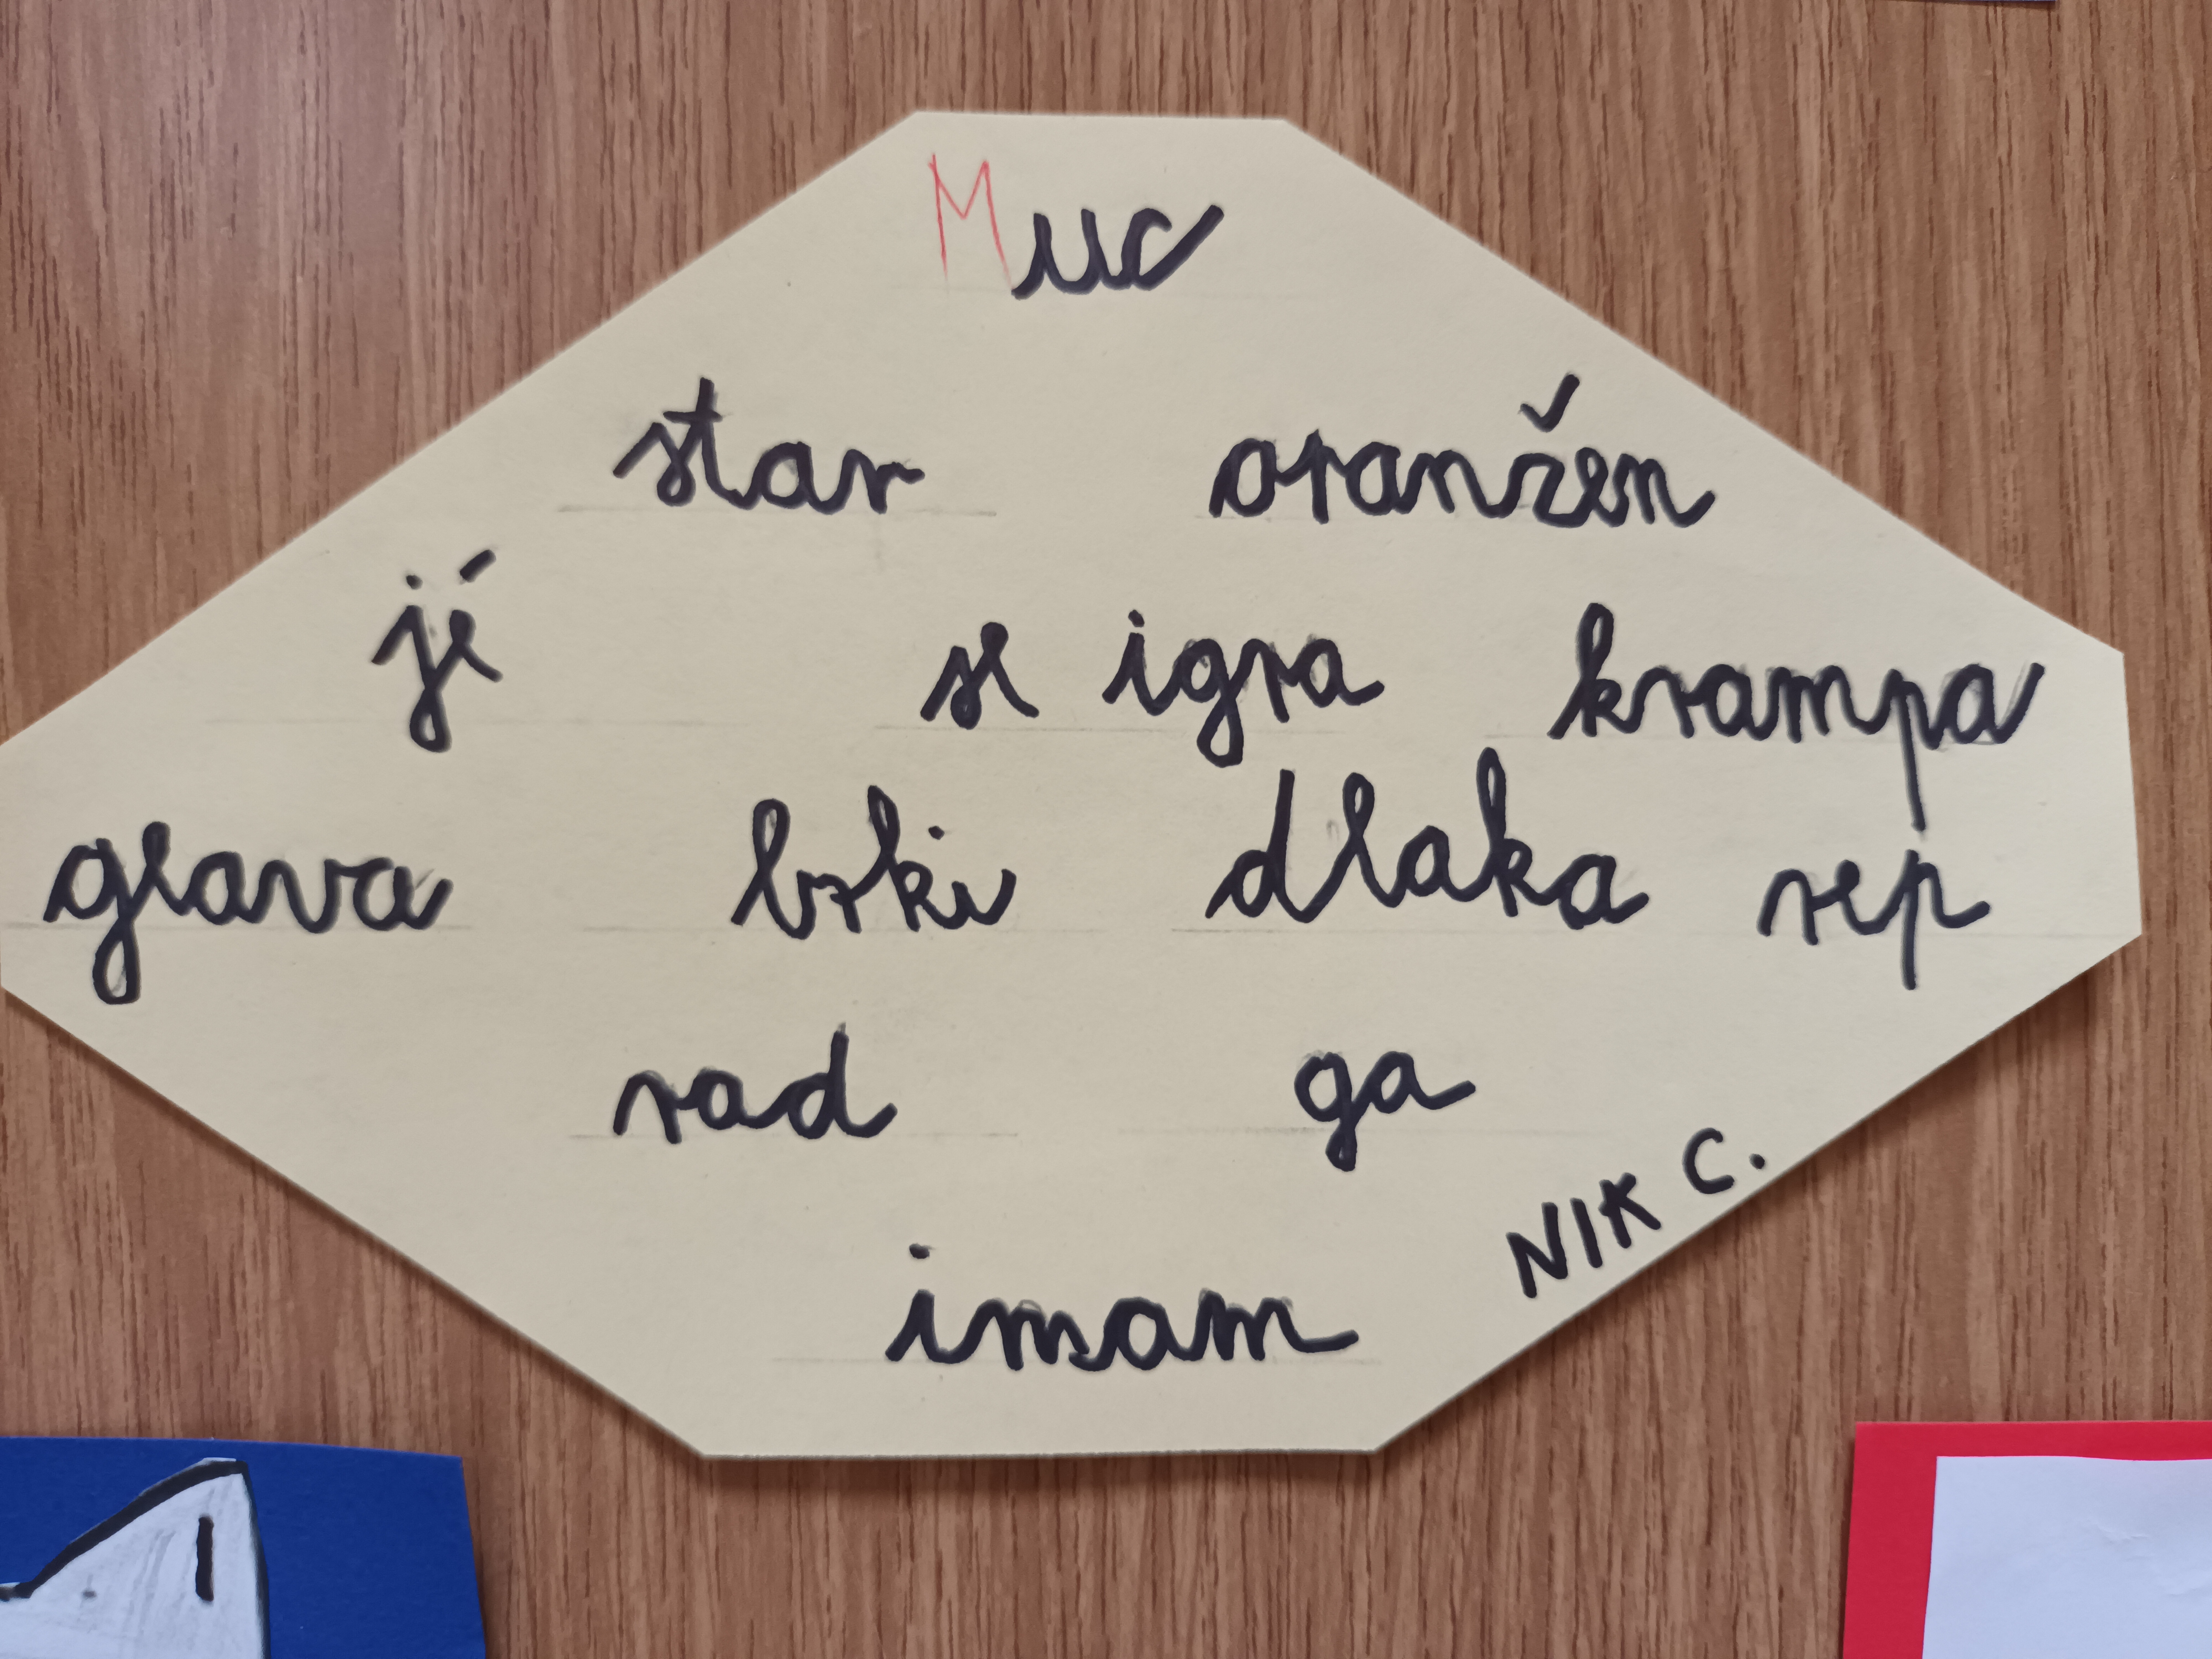 Muc
star oranžen
jé se igra krampa
glava brki dlaka rep
rad ga
NIK C.
imam